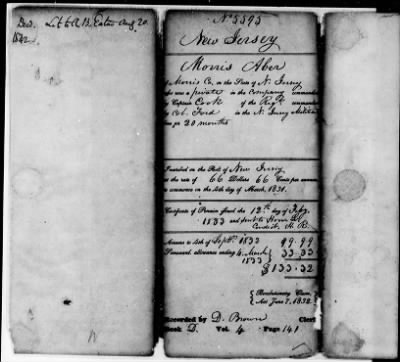 Ded. Let to A B. Eaton Aug 20.
1842.
No 5595
New Jersey
Morris Aber
of Morris Co. in the State of N. Jersey
who was a private in the Company commanded
by Captain Cook of the Regt. commanded
by Col. Ford in the N. Jersey Militia
for 20 months
Inscribed on the Roll of New Jersey
at the rate of 66 Dollars 66 Cents per annum
to commence on the 4th day of March, 1831.
Certificate of Pension issued the 12th day of Feby.
1833 and sent to Hon.
Condict. H. R.
Arrears to 4th of Sept. 1833 99.99
Semi-anl. allowance ending 4 March 33.33
1833
$133.32
Revolutionary Claim,
Act June 7, 1832.
Recorded by D. Brown Clerk
Book D. Vol. 4 Page 141